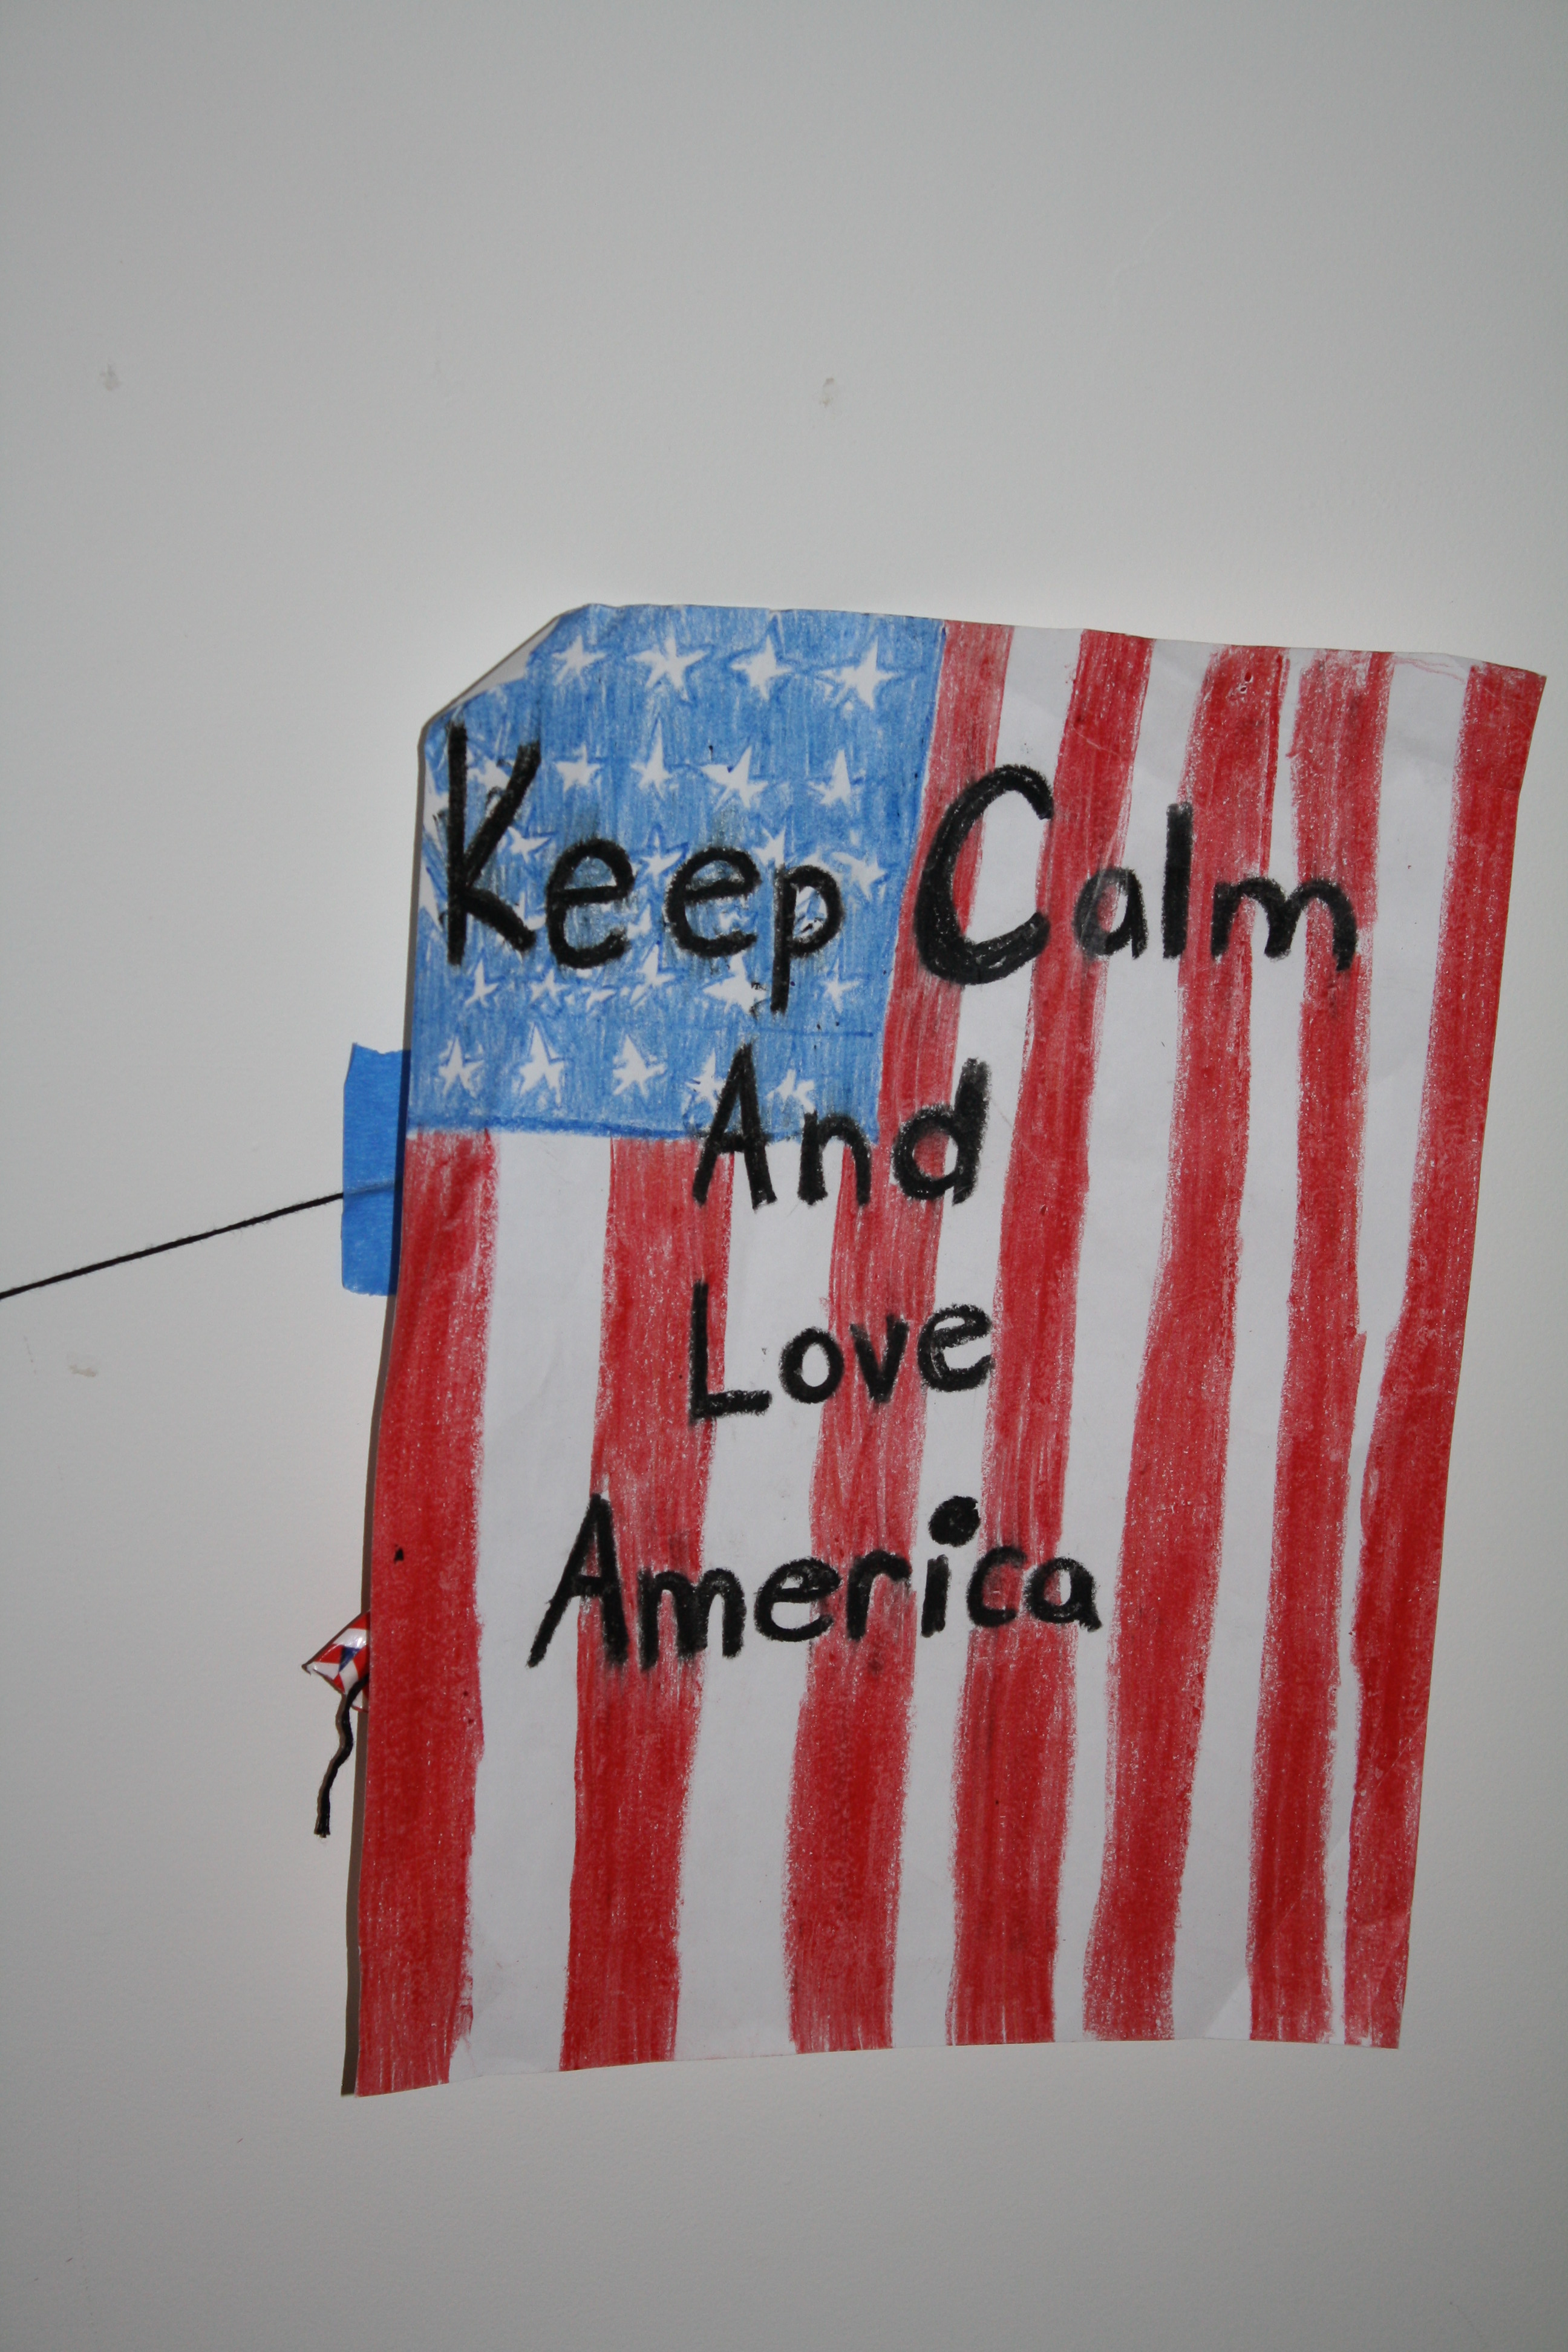 Keep Calm
And
Love
America